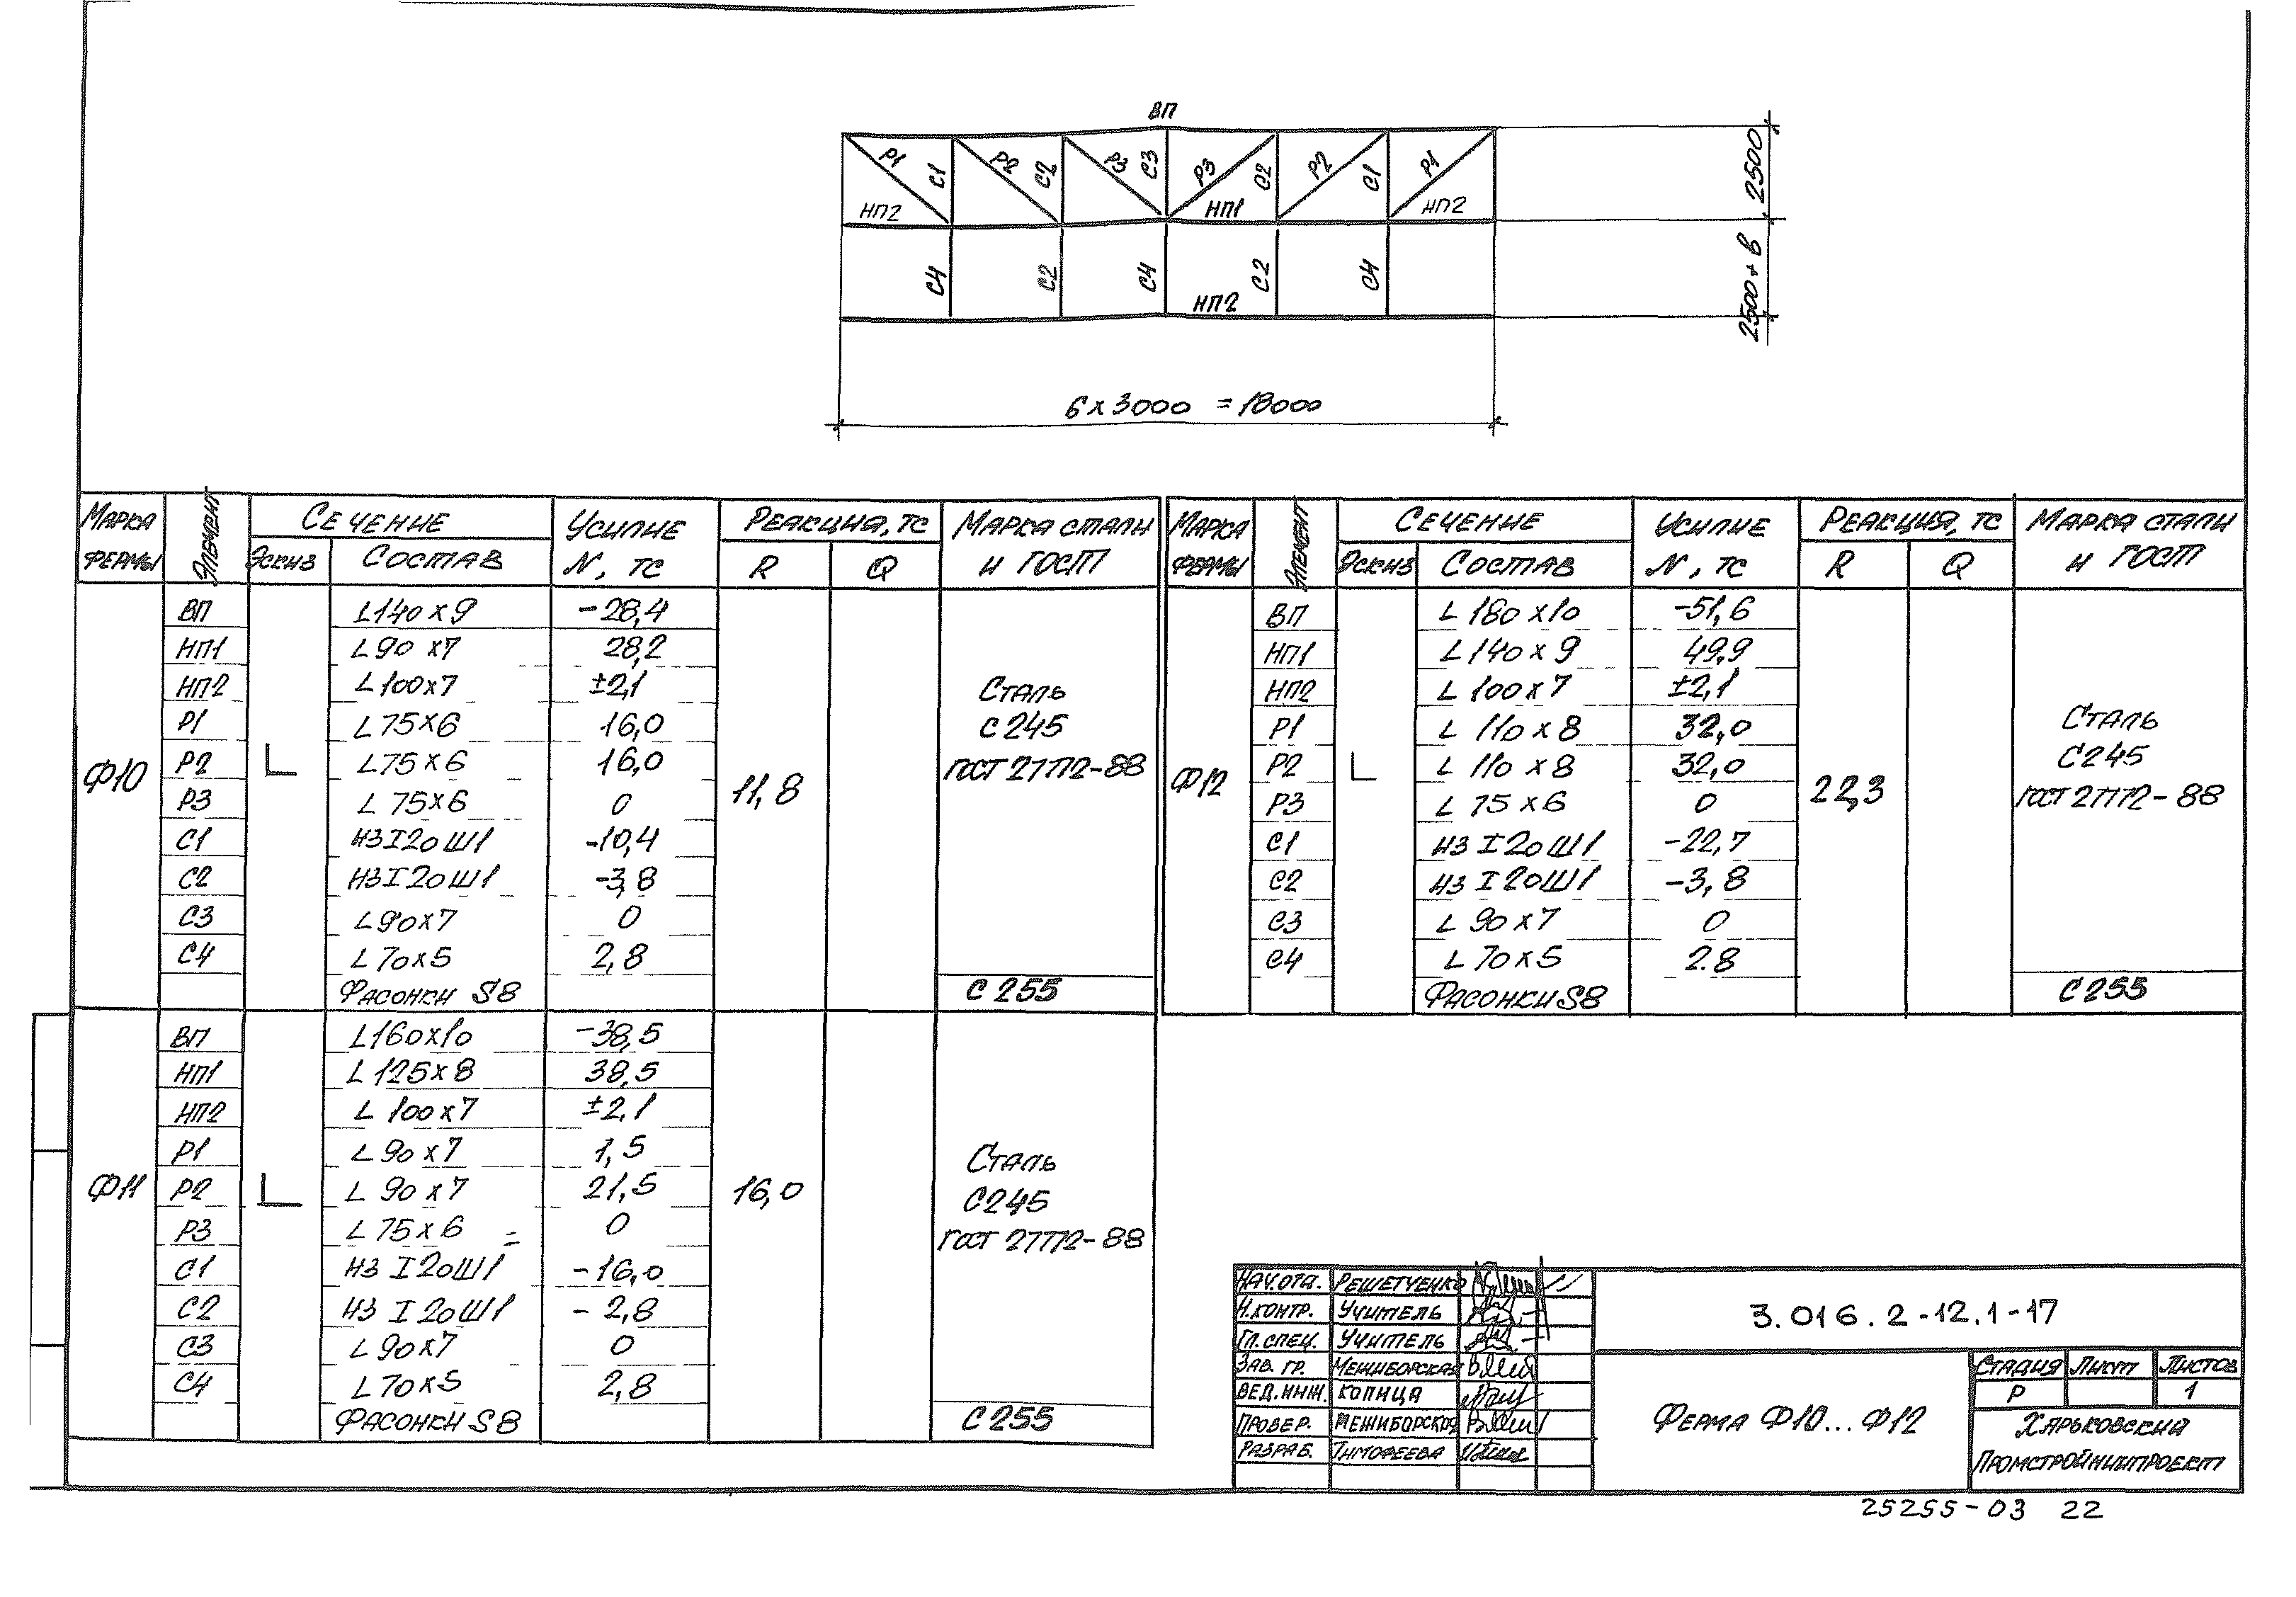 ВП
Р1 С1 Р2 С2 Р3 С3 Р3 С2 Р2 С1 Р1
НП2 НП1 НП2
С4 С2 С4 С2 С4
НП2
2500
2500+в
6х3000 =18000
Марка фермы Элемент Сечение Усилие N, тс Реакция, тс Марка стали и ГОСТ
Эскиз Состав R Q
Ф10
ВП L140х9 -28,4
НП1 L90х7 28,2
НП2 L100х7 ±2,1
Р1 L75х6 16,0
Р2 L75х6 16,0
Р3 L75х6 0
С1 из I20Ш1 -10,4
С2 из I20Ш1 -3,8
С3 L90х7 0
С4 L70х5 2,8
Фасонки S8
11,8
Сталь
С245
ГОСТ 27772-88
С255
Ф11
ВП L160х10 -38,5
НП1 L125х8 38,5
НП2 L100х7 ±2,1
Р1 L90х7 1,5
Р2 L90х7 21,5
Р3 L75х6 0
С1 из I20Ш1 -16,0
С2 из I20Ш1 -2,8
С3 L90х7 0
С4 L70х5 2,8
Фасонки S8
16,0
Сталь
С245
ГОСТ 27772-88
С255
Марка фермы Элемент Сечение Усилие N, тс Реакция, тс Марка стали и ГОСТ
Эскиз Состав R Q
Ф12
ВП L180х10 -51,6
НП1 L140х9 49,9
НП2 L100х7 ±2,1
Р1 L110х8 32,0
Р2 L110х8 32,0
Р3 L75х6 0
С1 из I20Ш1 -22,7
С2 из I20Ш1 -3,8
С3 L90х7 0
С4 L70х5 2.8
Фасонки S8
22,3
Сталь
С245
ГОСТ 27772-88
С255
Нач.отд. Решетченко
Н.контр. Учитель
Гл.спец. Учитель
Зав. гр. Межиборская
Вед.инж. Копица
Провер. Межиборская
Разраб. Тимофеева
3.016.2-12.1-17
Ферма Ф10...Ф12
Стадия Лист Листов
Р 1
Харьковский
Промстройниипроект
25255-03 22